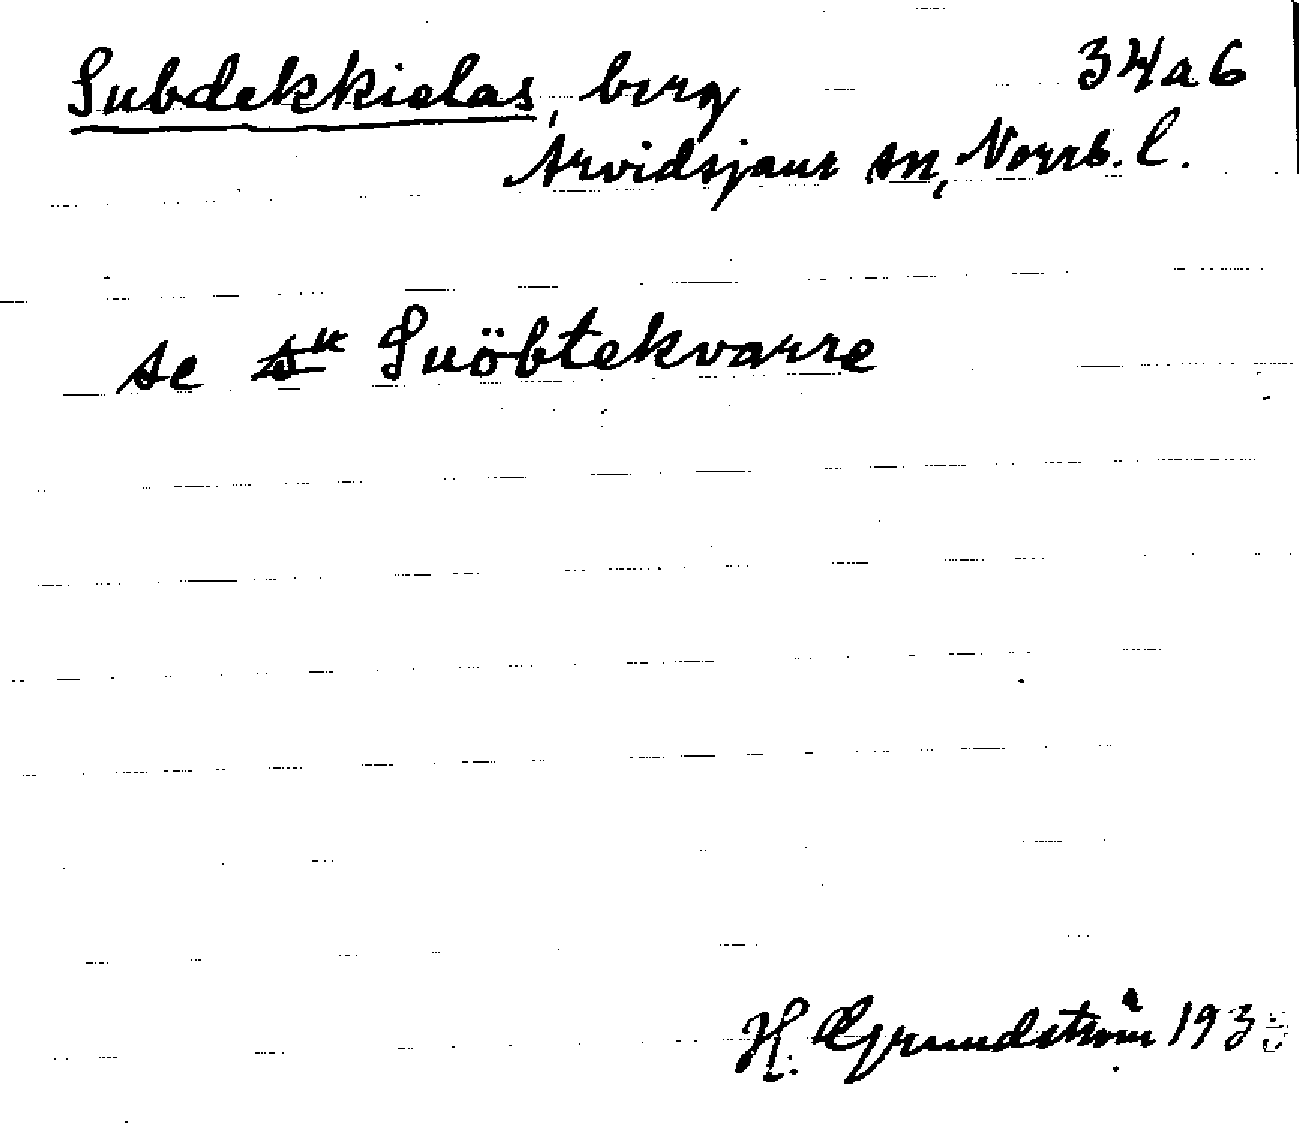 Subdekkielas, berg 34a6
Arvidsjaur sn, Norrb. l.
se Suöbtekvarre
H. Grundström 193